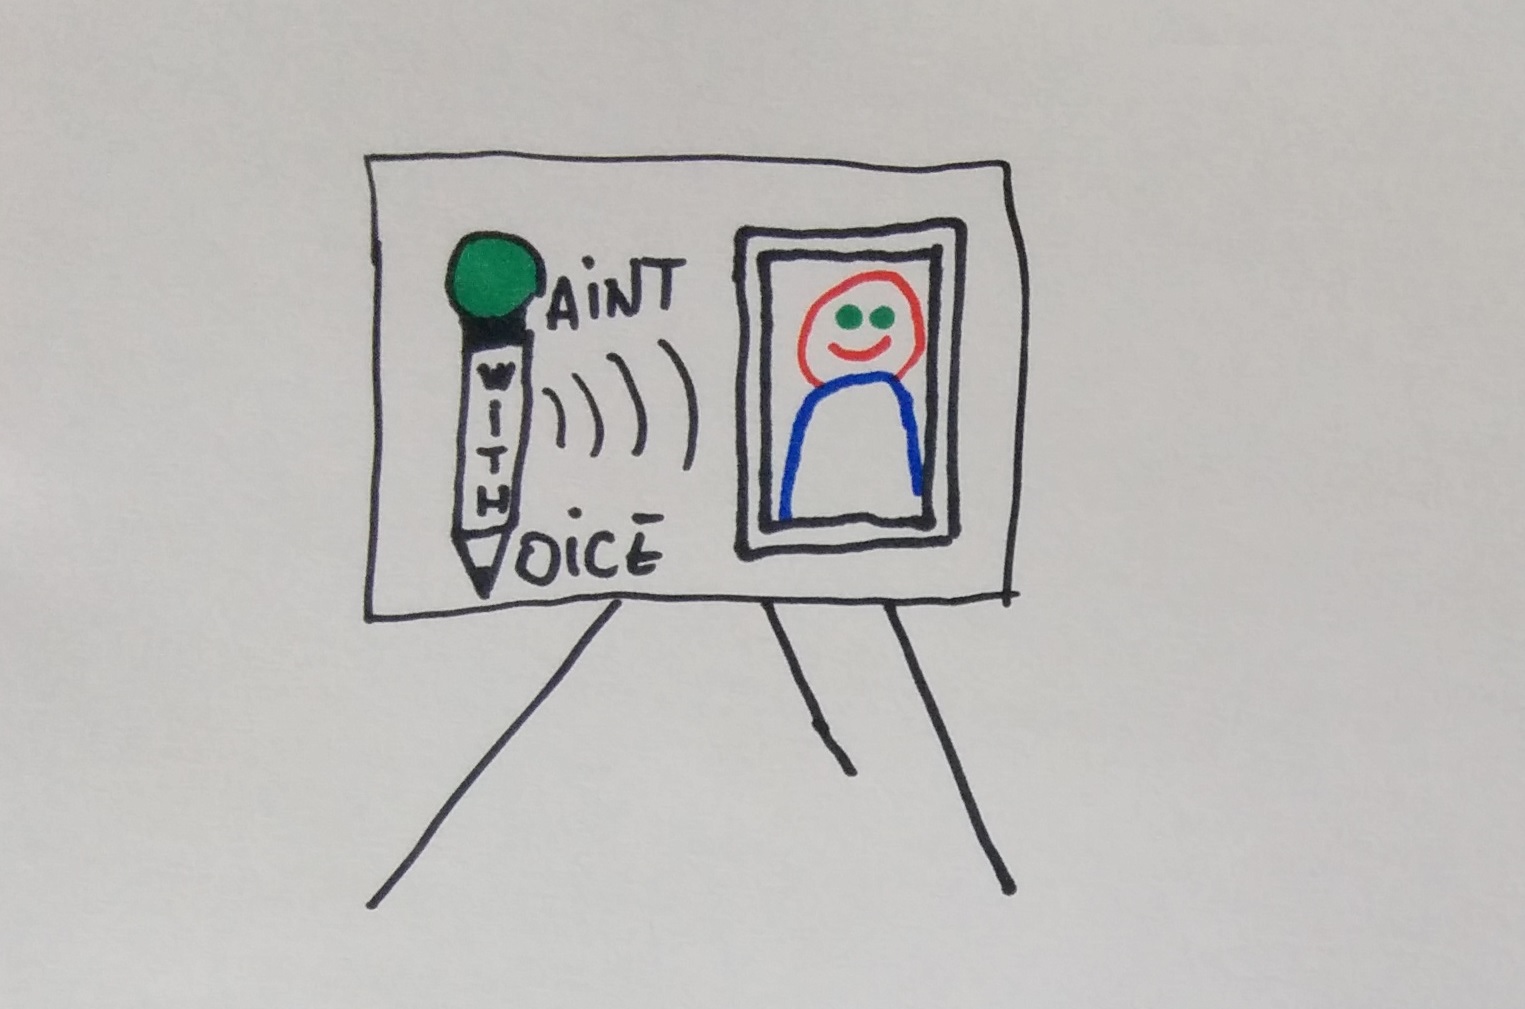 AiNT
WiTH
OiCE